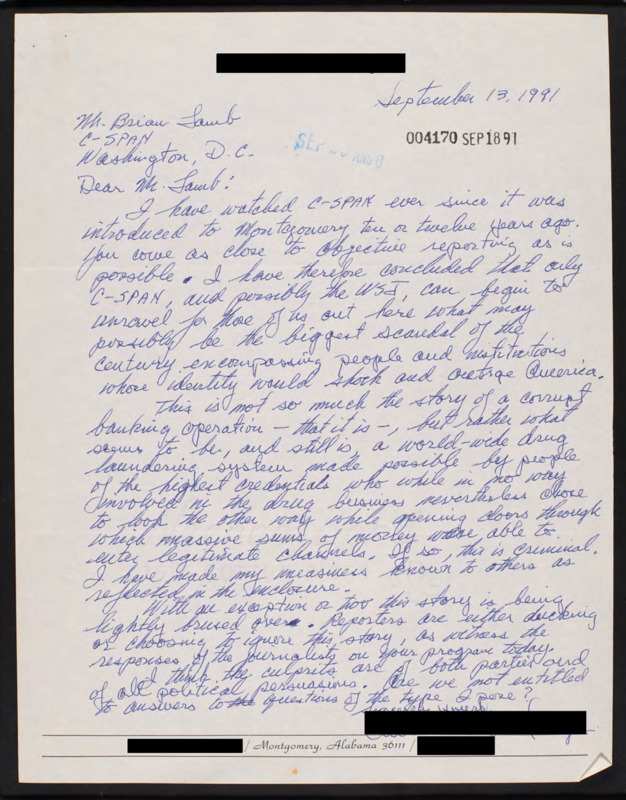 September 13, 1991
Mr. Brian Lamb
C-SPAN
Washington, D.C.
004170 SEP1891
SEP
Dear Mr. Lamb:
I have watched C-SPAN ever since it was
introduced to Montgomery ten or twelve years ago.
You come as close to objective reporting as is
possible. I have therefore concluded that only
C-SPAN, and possibly the WSJ, can begin to
unravel for those of us out here what may
possibly be the biggest scandal of the
century encompassing people and institutions
whose identity would shock and outrage America.
This is not so much the story of a corrupt
banking operation – that it is –, but rather what
seems to be, and still is, a world-wide drug
laundering system made possible by people
of the highest credentials who while in no way
involved in the drug business nevertheless chose
to look the other way while opening doors through
which massive sums of money were able to
enter legitimate channels. If so, this is criminal.
I have made my uneasiness known to others as
reflected in the enclosure.
With an exception or two this story is being
lightly brused over. Reporters are either ducking
or choosing to ignore this story, as witness the
responses of the journalists on your program today.
I think the culprits are of both parties and
of all political persuasions. Are we not entitled
to answers to the questions of the type I pose?
Sincerely yours,
/ Montgomery, Alabama 36111 /